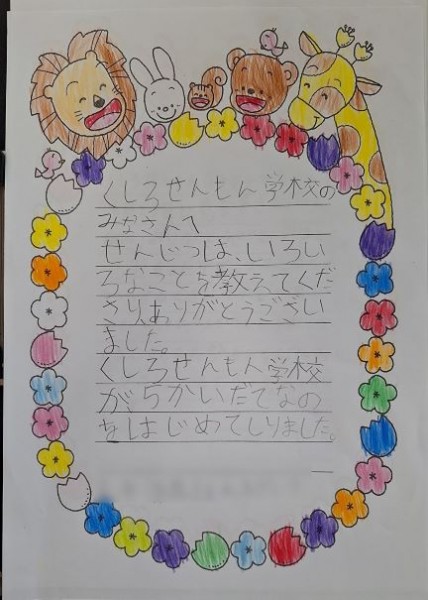 くしろせんもん学校の
みなさんへ
せんじつは、いろい
ろなことを教えてくだ
さり、ありがとうござい
ました。
くしろせんもん学校
が、5かいだてなの
をはじめてしりました。